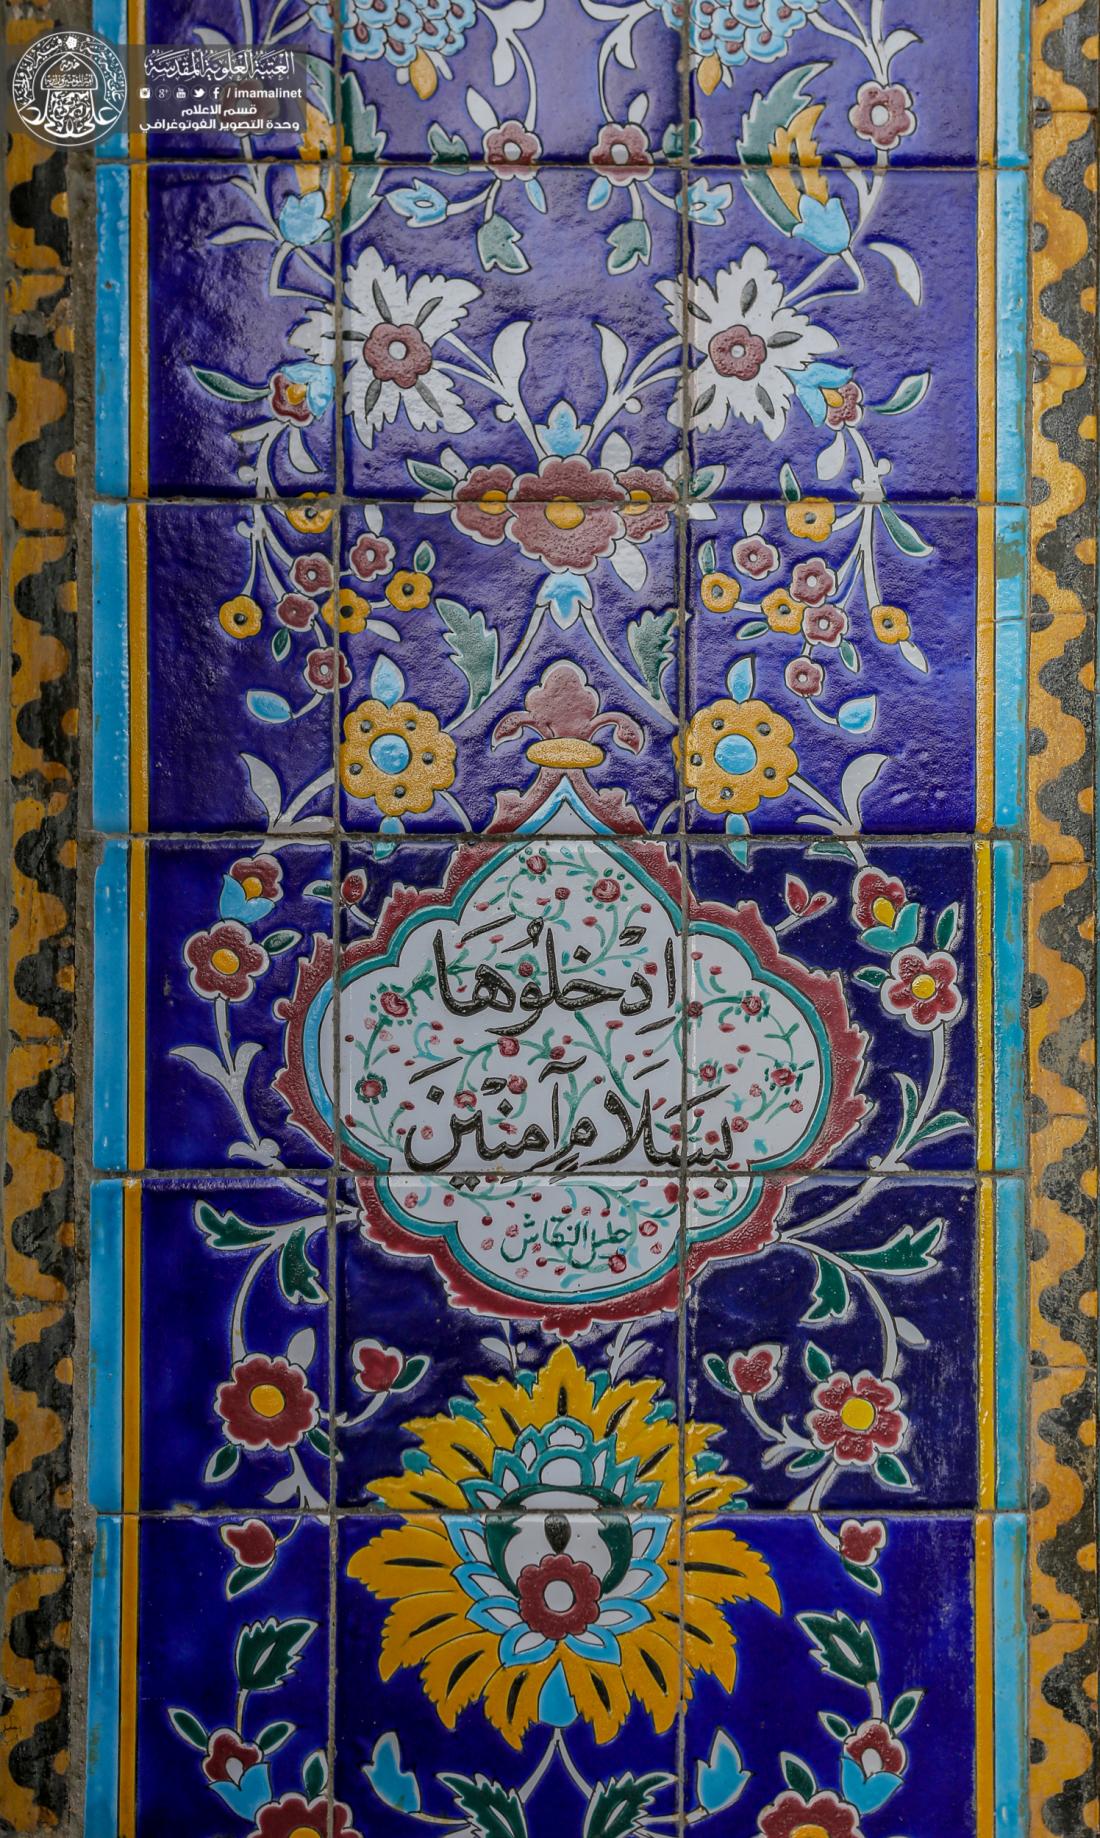 العتبة العلوية المقدسة
/ imamalinet
قسم الاعلام
وحدة التصوير الفوتوغرافي
اِدْخلُوهَا
بسَلَامٍ آمِنْينَ
النقاش